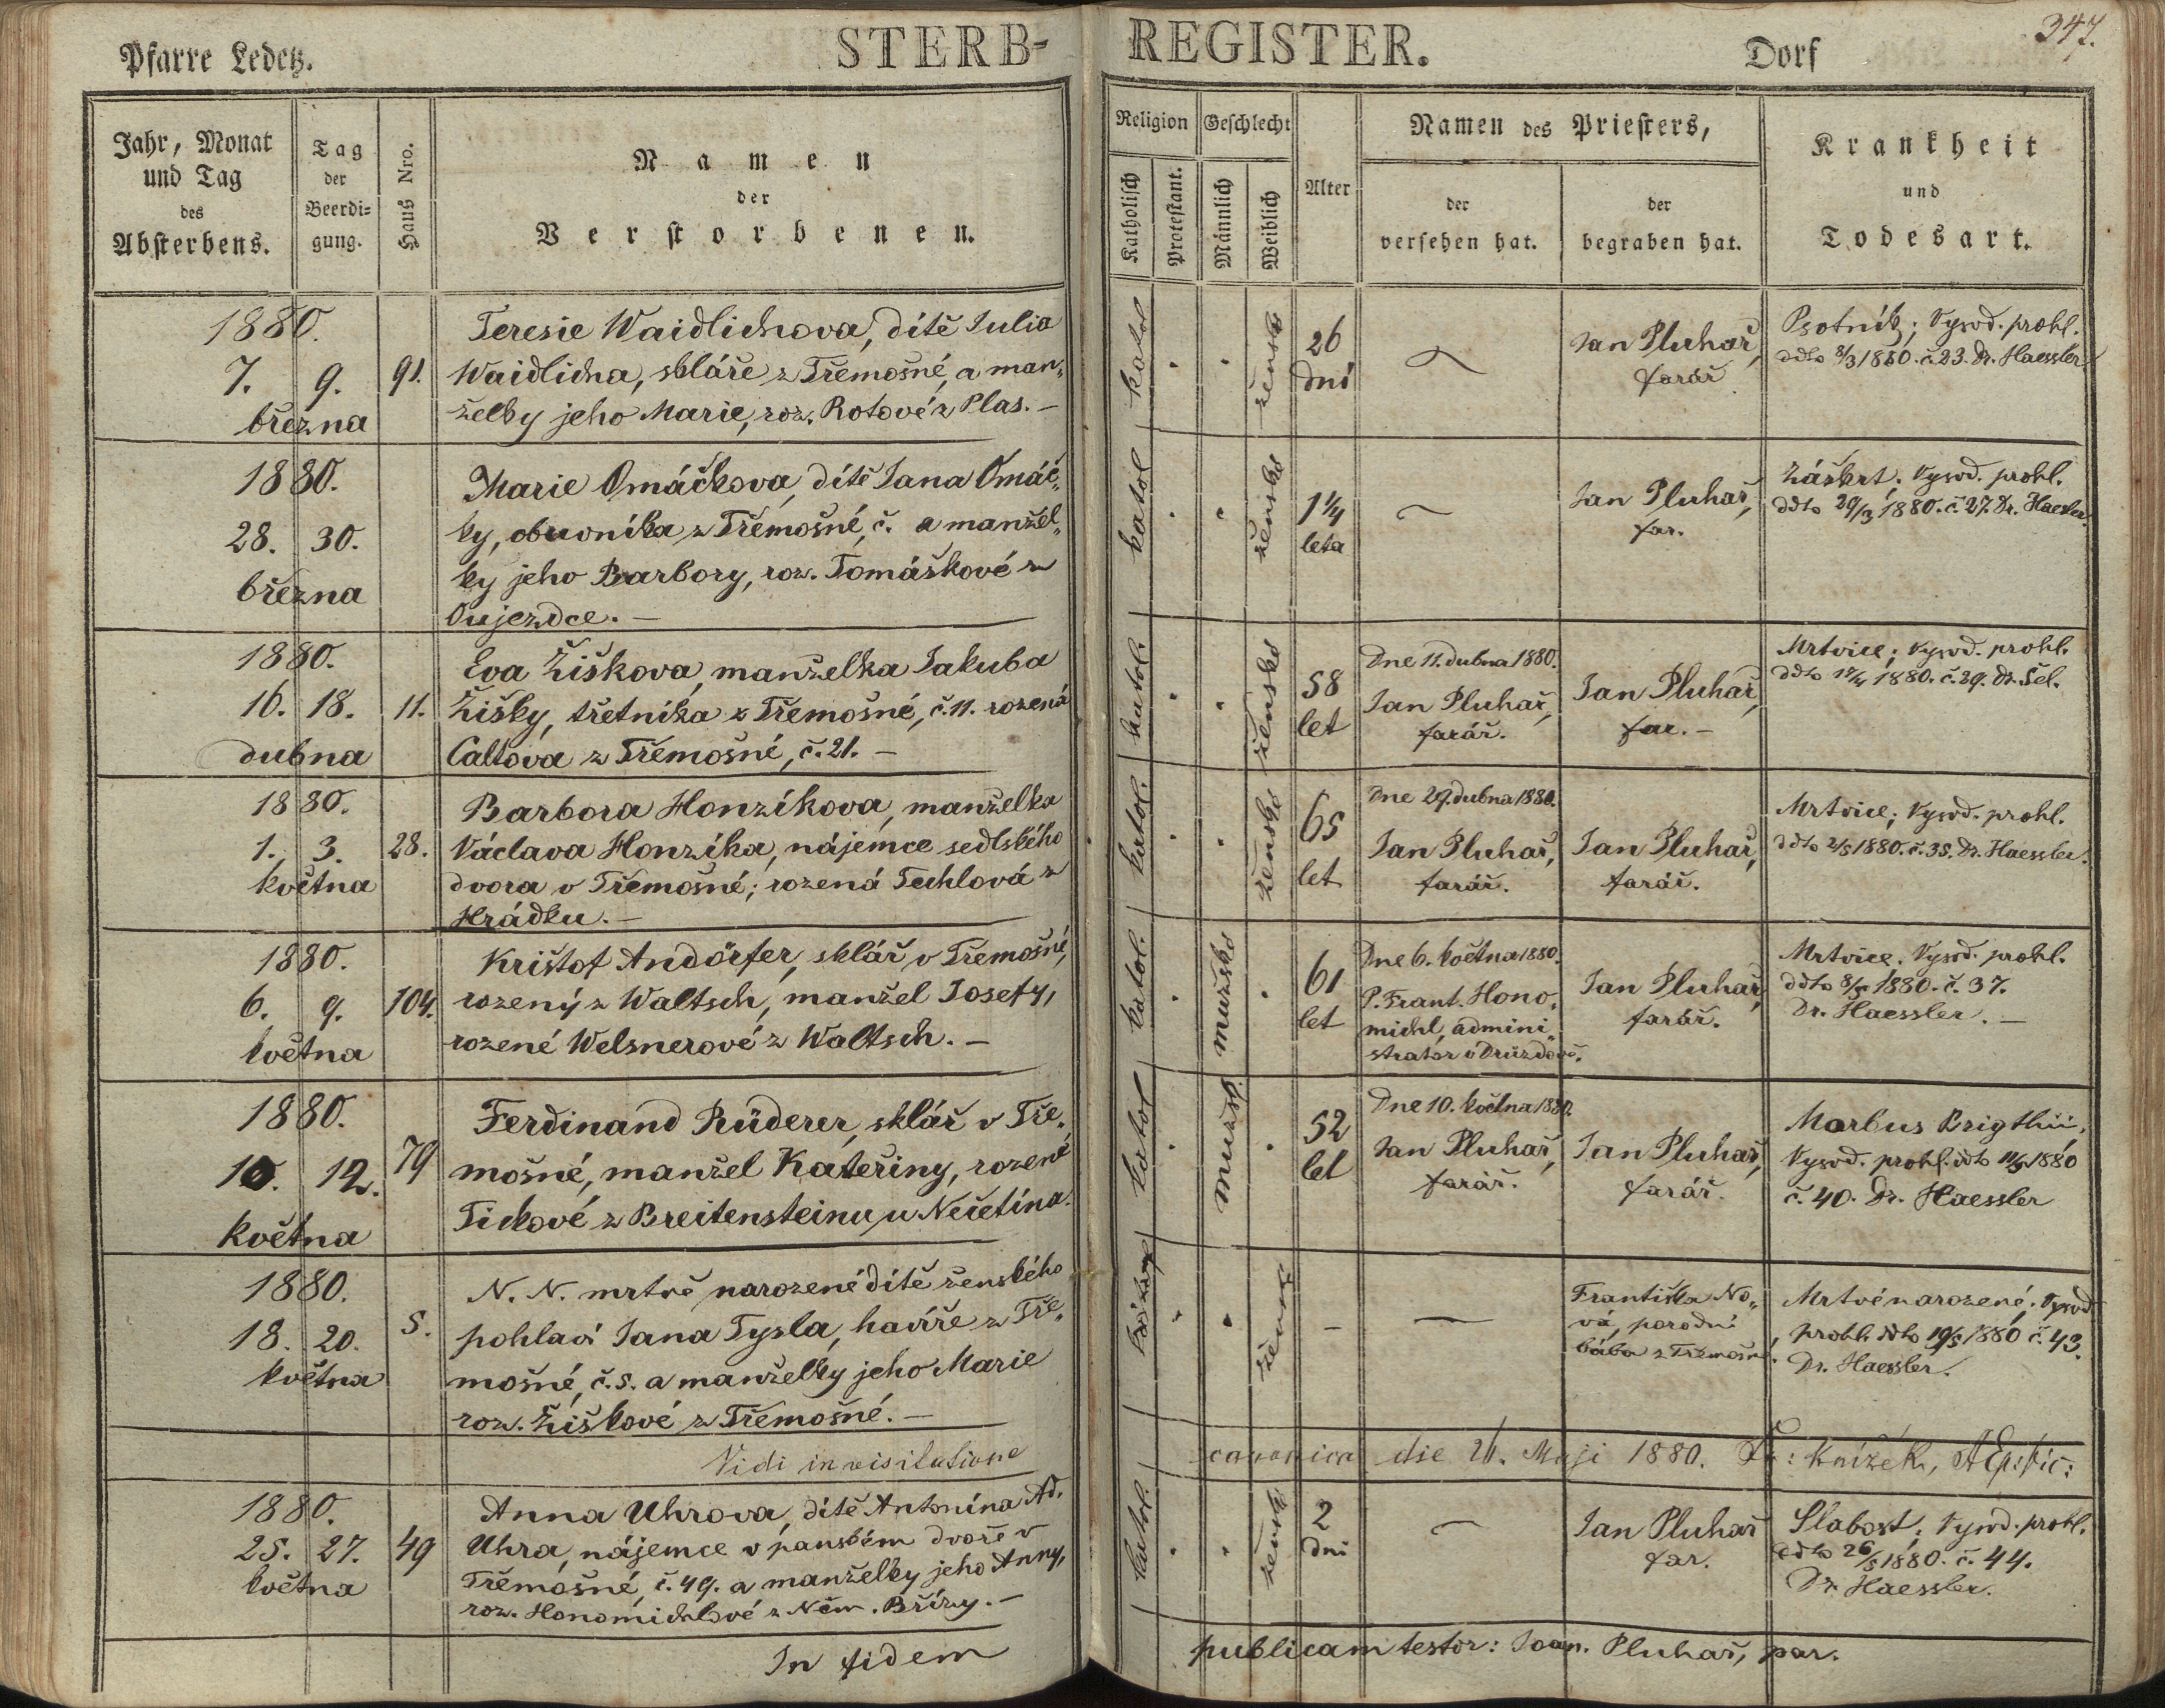 347.
Pfarre Ledetz.
STERB-
REGISTER.
Dorf
Jahr, Monat
und Tag
des
Absterbens.
Tag
der
Beerdi=
gung.
Haus Nro.
Namen
der
Verstorbenen.
Religion
Geschlecht
Katholisch
Protestant.
Männlich
Weiblich
Alter
Namen des Priesters,
der
versehen hat.
der
begraben hat.
Krankheit
und
Todesart.
1880.
7. 9.
března
91.
Teresie Waidlichova, dítě Julia
Waidlicha, skláře z Třemošné, a man„
želky jeho Marie, roz. Rotové z Plas. –
katol
žensk
26
dní
Jan Pluhař,
farář
Psotník; Vysvd. prohl.
ddto 8/3 1880. č. 23. Dr. Haessler
1880.
28. 30.
března
Marie Omáčkova, dítě Jana Omáč„
ky, obuvníka z Třemošné, č. a manžel„
ky jeho Barbory, roz. Tomáškové z
Oujezdce. –
katol
ženské
1 1/4
leta
Jan Pluhař,
far.
Záškrt. Vysvd. prohl.
ddto 29/3 1880. č. 27. Dr. Haessler.
1880.
16. 18.
dubna
11.
Eva Žiškova, manželka Jakuba
Žišky, třetníka z Třemošné, č. 11. rozená
Caltova z Třemošné, č. 21. –
katol.
ženské
58
let
Dne 11. dubna 1880.
Jan Pluhař,
farář.
Jan Pluhař,
far. –
Mrtvice; Vysvd. prohl.
ddto 17/4 1880. č. 29. Dr. Šel.
1880.
1. 3.
května
28.
Barbora Honzíkova, manželka
Václava Honzíka, nájemce sedlského
dvora v Třemošné; rozená Techlová z
Hrádku. –
katol.
ženské
65
let
Dne 29. dubna 1880.
Jan Pluhař,
farář.
Jan Pluhař,
farář.
Mrtvice; Vysvd. prohl.
ddto 2/5 1880. č. 35. Dr. Haessler.
1880.
6. 9.
května
104.
Krištof Andörfer, sklář v Třemošné,
rozený z Waltsch, manžel Josefy,
rozené Welsnerové z Waltsch. –
katol.
mužské
61
let
Dne 6. května 1880.
P. Frant. Hono„
michl, admini„
strator v Drůzdově.
Jan Pluhař,
farář.
Mrtvice. Vysvd. prohl.
ddto 8/5 1880. č. 37.
Dr. Haessler. –
1880.
10. 12.
května
79
Ferdinand Rüderer, sklář v Tře„
mošné, manžel Kateřiny, rozené
Tickové z Breitensteinu, u Nečetína.
katol
mužsk.
52
let
Dne 10. května 1880.
Jan Pluhař,
farář.
Jan Pluhař,
farář.
Morbus Brigthii,
Vysvd. prohl. ddto 11/5 1880
č. 40. Dr. Haessler
1880.
18. 20.
května
5.
N. N. mrtvě narozené dítě ženského
pohlaví Jana Tysla, havíře z Tře„
mošné, č. 5. a manželky jeho Marie
roz. Žiškové z Třemošné. –
žensk
Františka No„
vá, porodní
bába z Třemošné.
Mrtvé narozené; Vysvd.
prohl. ddto 19/5 1880 č. 43.
Dr. Haessler.
Vidi in visitatione canonica die 26. Maji 1880. Fr: Knížek,
1880.
25. 27.
května
49
Anna Uhrova, dítě Antonína Ad.
Uhra, nájemce v panském dvoře v
Třemošné, č. 49. a manželky jeho Anny,
roz. Honomichlové z Něm. Břízy. –
katol.
žensk
2
dni
Jan Pluhař
far.
Slabost. Vysvd. prohl.
ddto 26/5 1880. č. 44.
Dr. Haessler.
In fidem publicam testor: Joan. Pluhař, par.